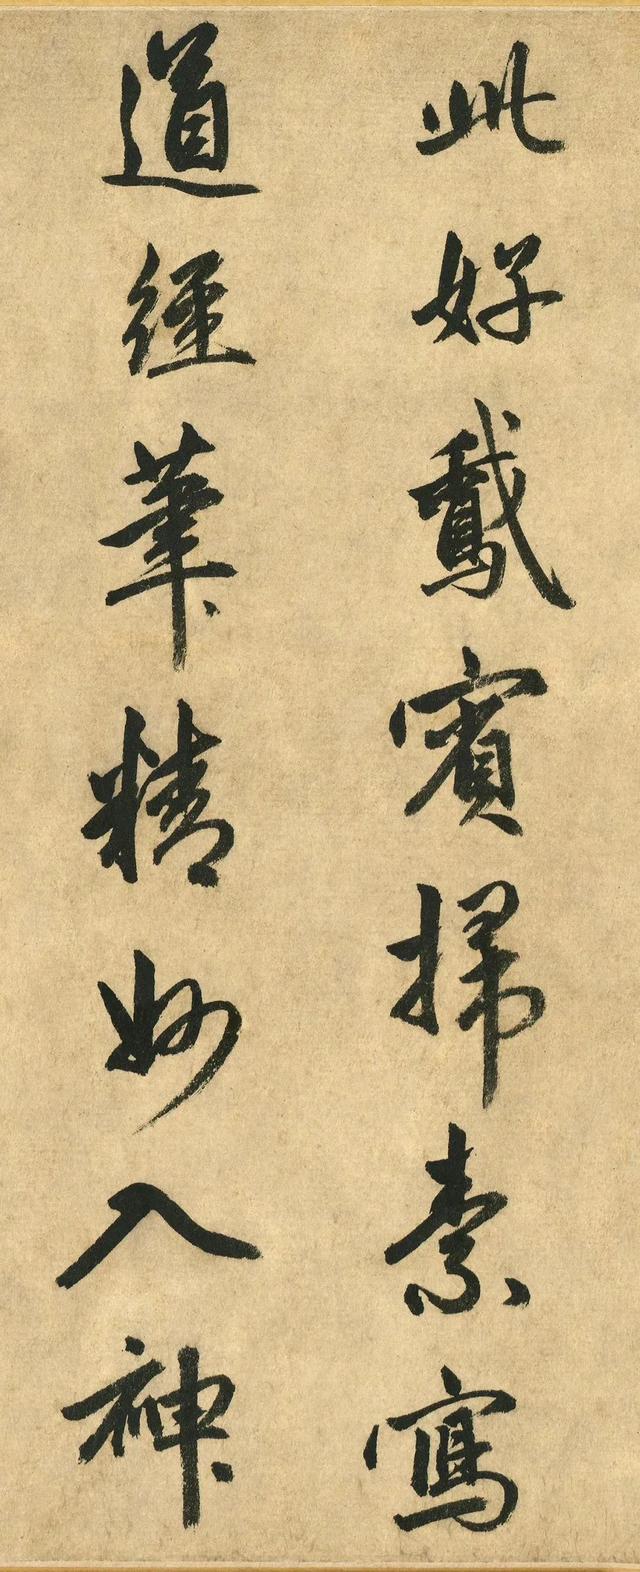 此好鵞賓掃素寫
道經筆精妙入神